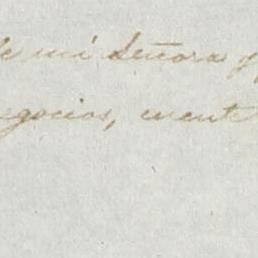 de mi Señora y
negocios, cuente